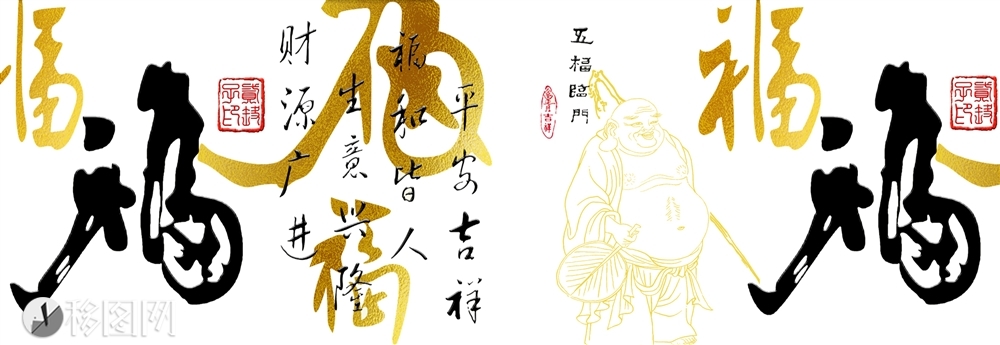 福
福
福
平安吉祥
福和皆人
生意兴隆
财源广进
福
五福臨門
福
福
移图网